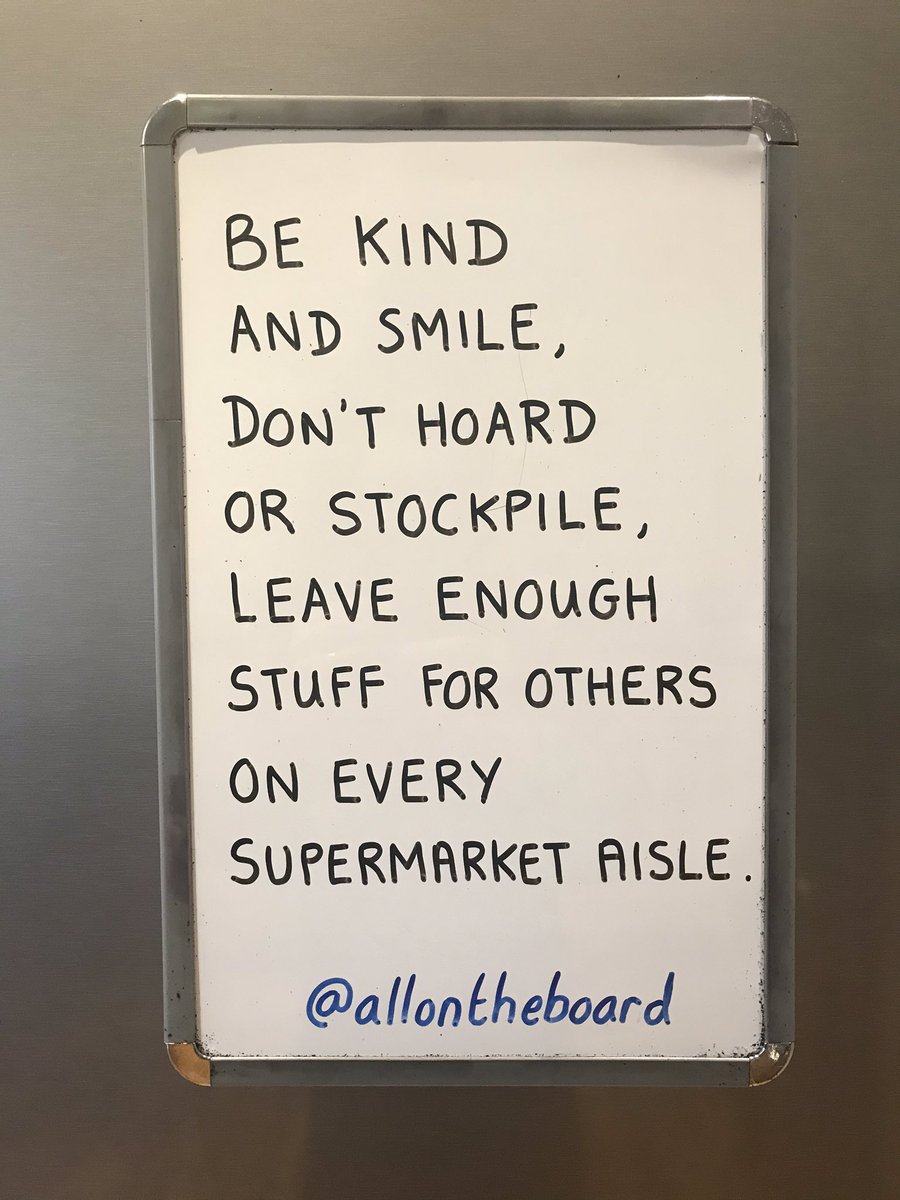 BE KIND
AND SMILE,
DON'T HOARD
OR STOCKPILE,
LEAVE ENOUGH
STUFF FOR OTHERS
ON EVERY
SUPERMARKET AISLE.
@allontheboard